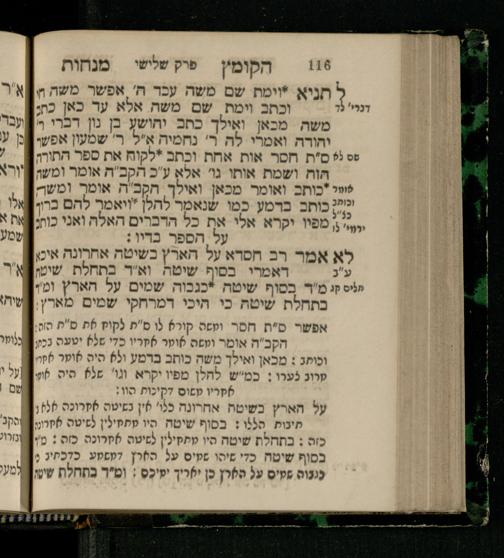 116 הקומץ פרק שלישי מנחות
ל תניא *וימת שם משה עבד ה' אפשר משה חי
דברי' לד וכתב וימת שם משה אלא עד כאן כתב
משה מכאן ואילך כתב יהושע בן נון דברי ר'
יהודה ואמרי לה ר' נחמיה א"ל ר' שמעון אפשר
שם לא ס"ת חסר אות אחת וכתב *לקוח את ספר התורה
הזה ושמת אותו גו' אלא ע"כ הקב"ה אומר ומשה
אומר *כותב ואומר מכאן ואילך הקב"ה אומר ומשה
וכותב כותב בדמע כמו שנאמר להלן *ויאמר להם ברוך
כל"ל
ירמי' לו מפיו יקרא אלי את כל הדברים האלה ואני כותב
על הספר בדיו :
לא אמר רב חסדא על הארץ בשיטה אחרונה איכא
ע"ב דאמרי בסוף שיטה וא"ד בתחלת שיטה
תלים קג מ"ד בסוף שיטה *כגבוה שמים על הארץ ומ"ד
בתחלת שיטה כי היכי דמרחקי שמים מארץ :
אפשר ס"ת חסר ומשה קורא לו ס"ת לקוח את ס"ת הזה :
הקב"ה אומר ומשה אומר אחריו כדי שלא יטעה בכתב
וכותב : מכאן ואילך משה כותב בדמע ולא היה אומר אחריו
מרוב צערו : כמ"ש להלן מפיו יקרא וגו' שלא היה אומר
אחריו משום דקינות הוו :
על הארץ בשיטה אחרונה כלו' אין בשיטה אחרונה אלא ב'
תיבות הללו : בסוף שיטה היו מתחילין לשיטה אחרונה
כזה : בתחלת שיטה היו מתחילין לשיטה אחרונה כזה : מ"ד
בסוף שיטה כדי שיהו שמים על הארץ דמשמע כדכתיב כי
כגבוה שמים על הארץ כן יאריך ימיכם : ומ"ד בתחלת שיטה